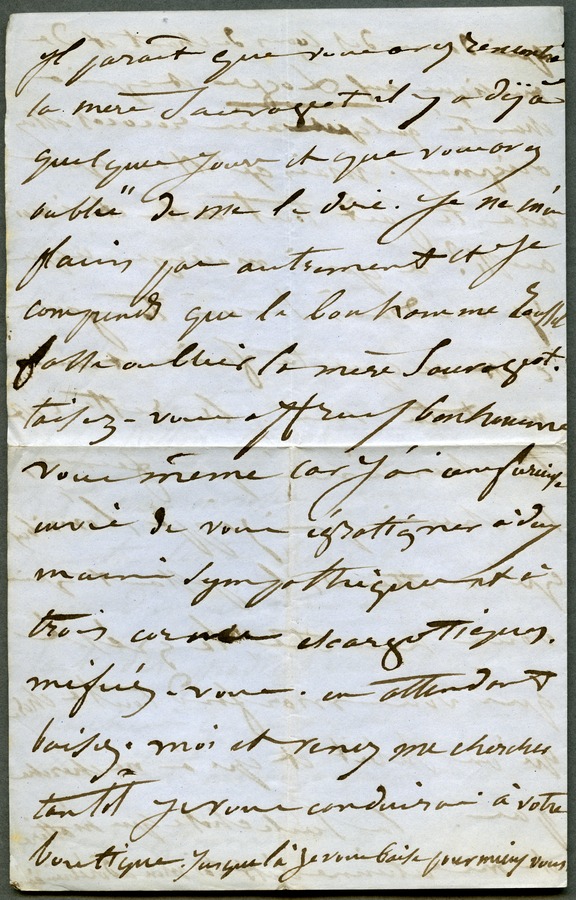 il parait que vous avez rencontré
la mère Sauvageot il y a déjà
quelques jours et que vous avez
oublié de me le dire. je ne m'en
plains pas autrement et je
comprends que le bonhomme
fasse oublier la mère Sauvageot.
taisez-vous affreux bonhomme
vous même car j'ai une furieuse
envie de vous égratigner à deux
mains sympathiquement à
trois cornes
méfiez-vous. en attendant
baisez-moi et venez me chercher
tantôt je vous conduirai à votre
boutique. jusque là je vous baise pour mieux vous